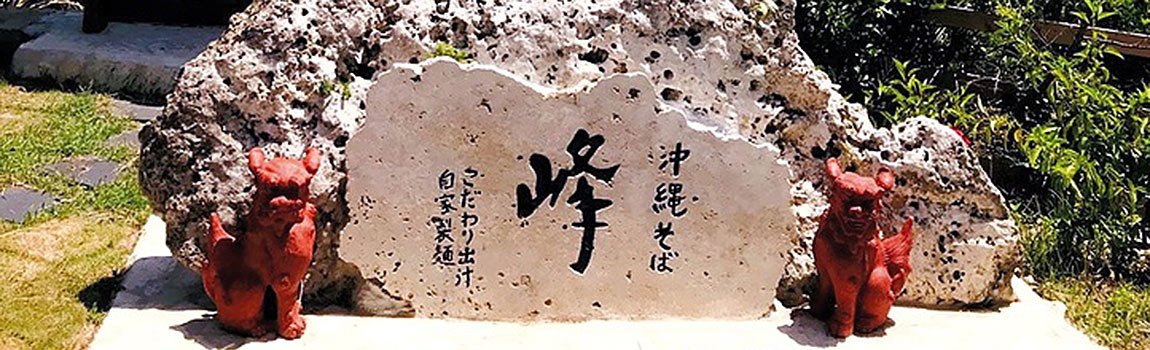 沖縄そば
峰
こだわり出汁
自家製麺